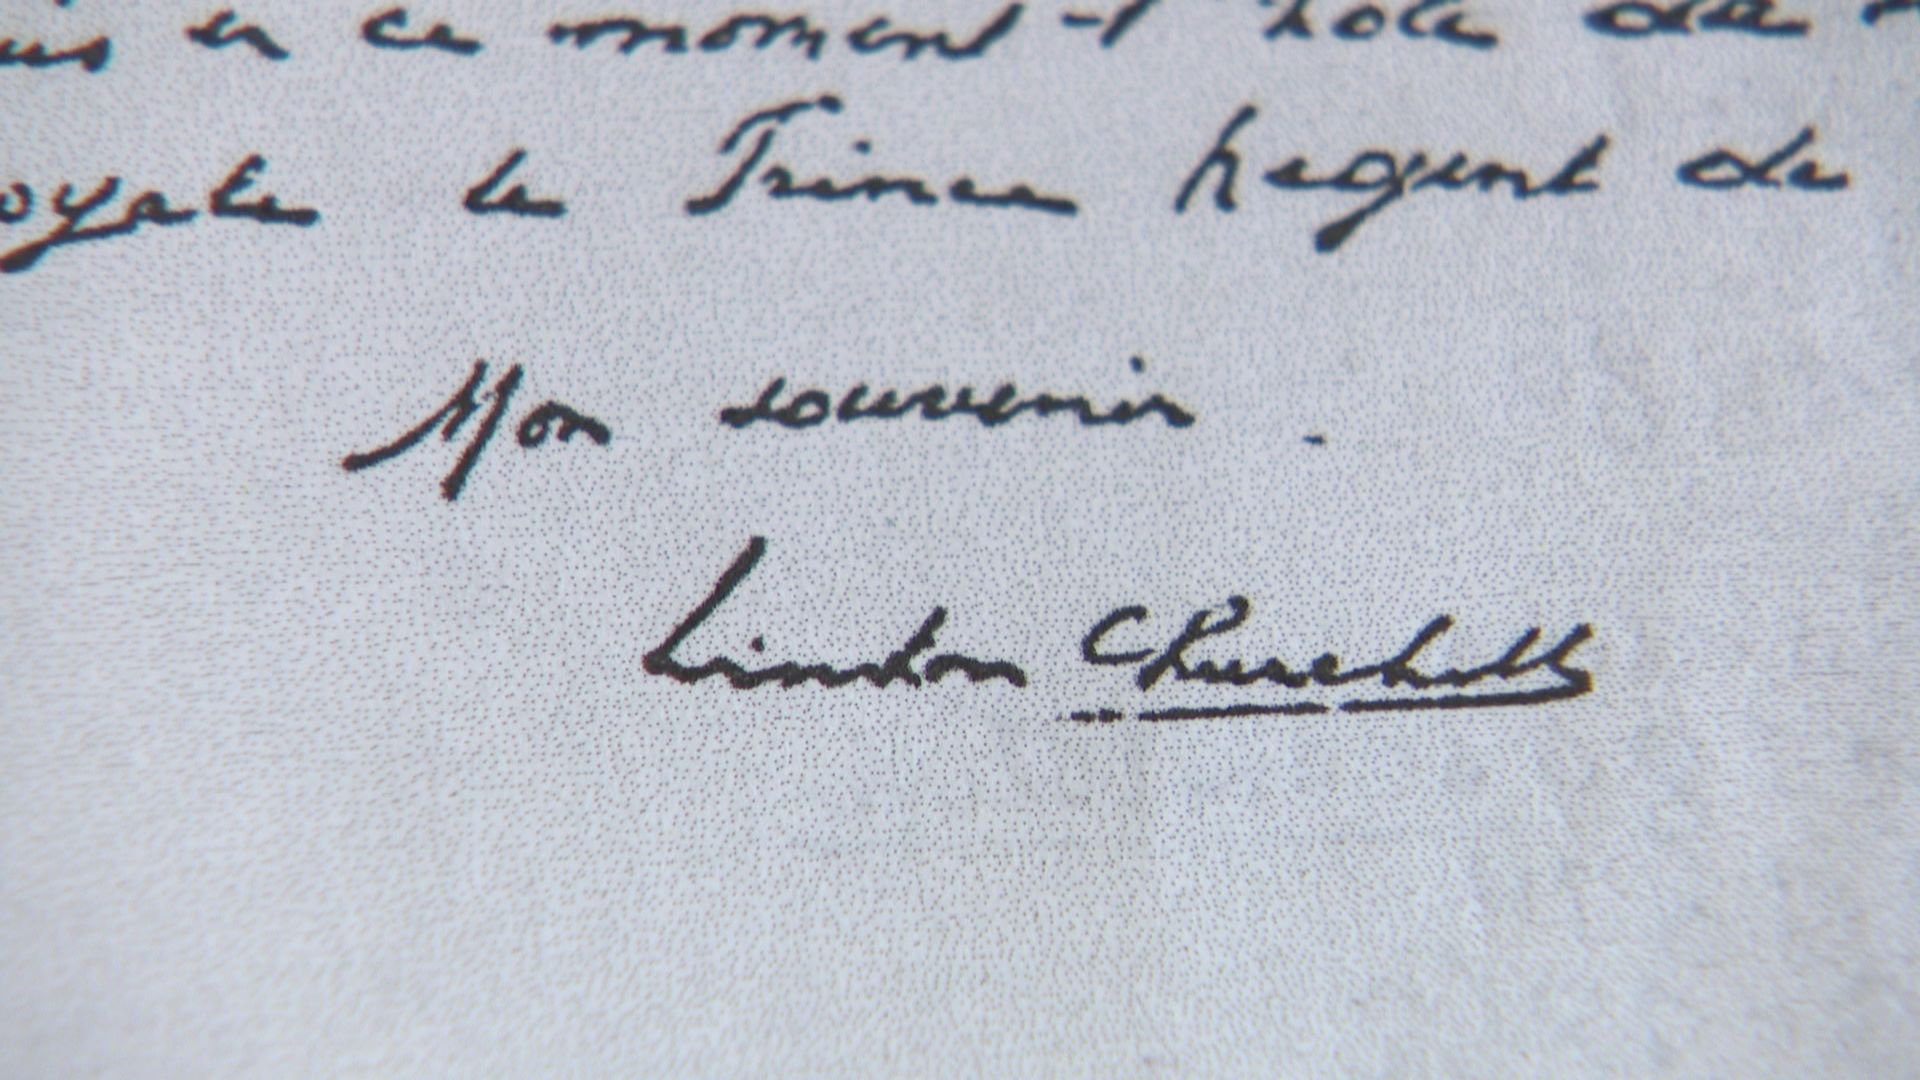 en ce moment l'hôte de
oyale le Prince Regent de
Mon souvenir.
Winston Churchill